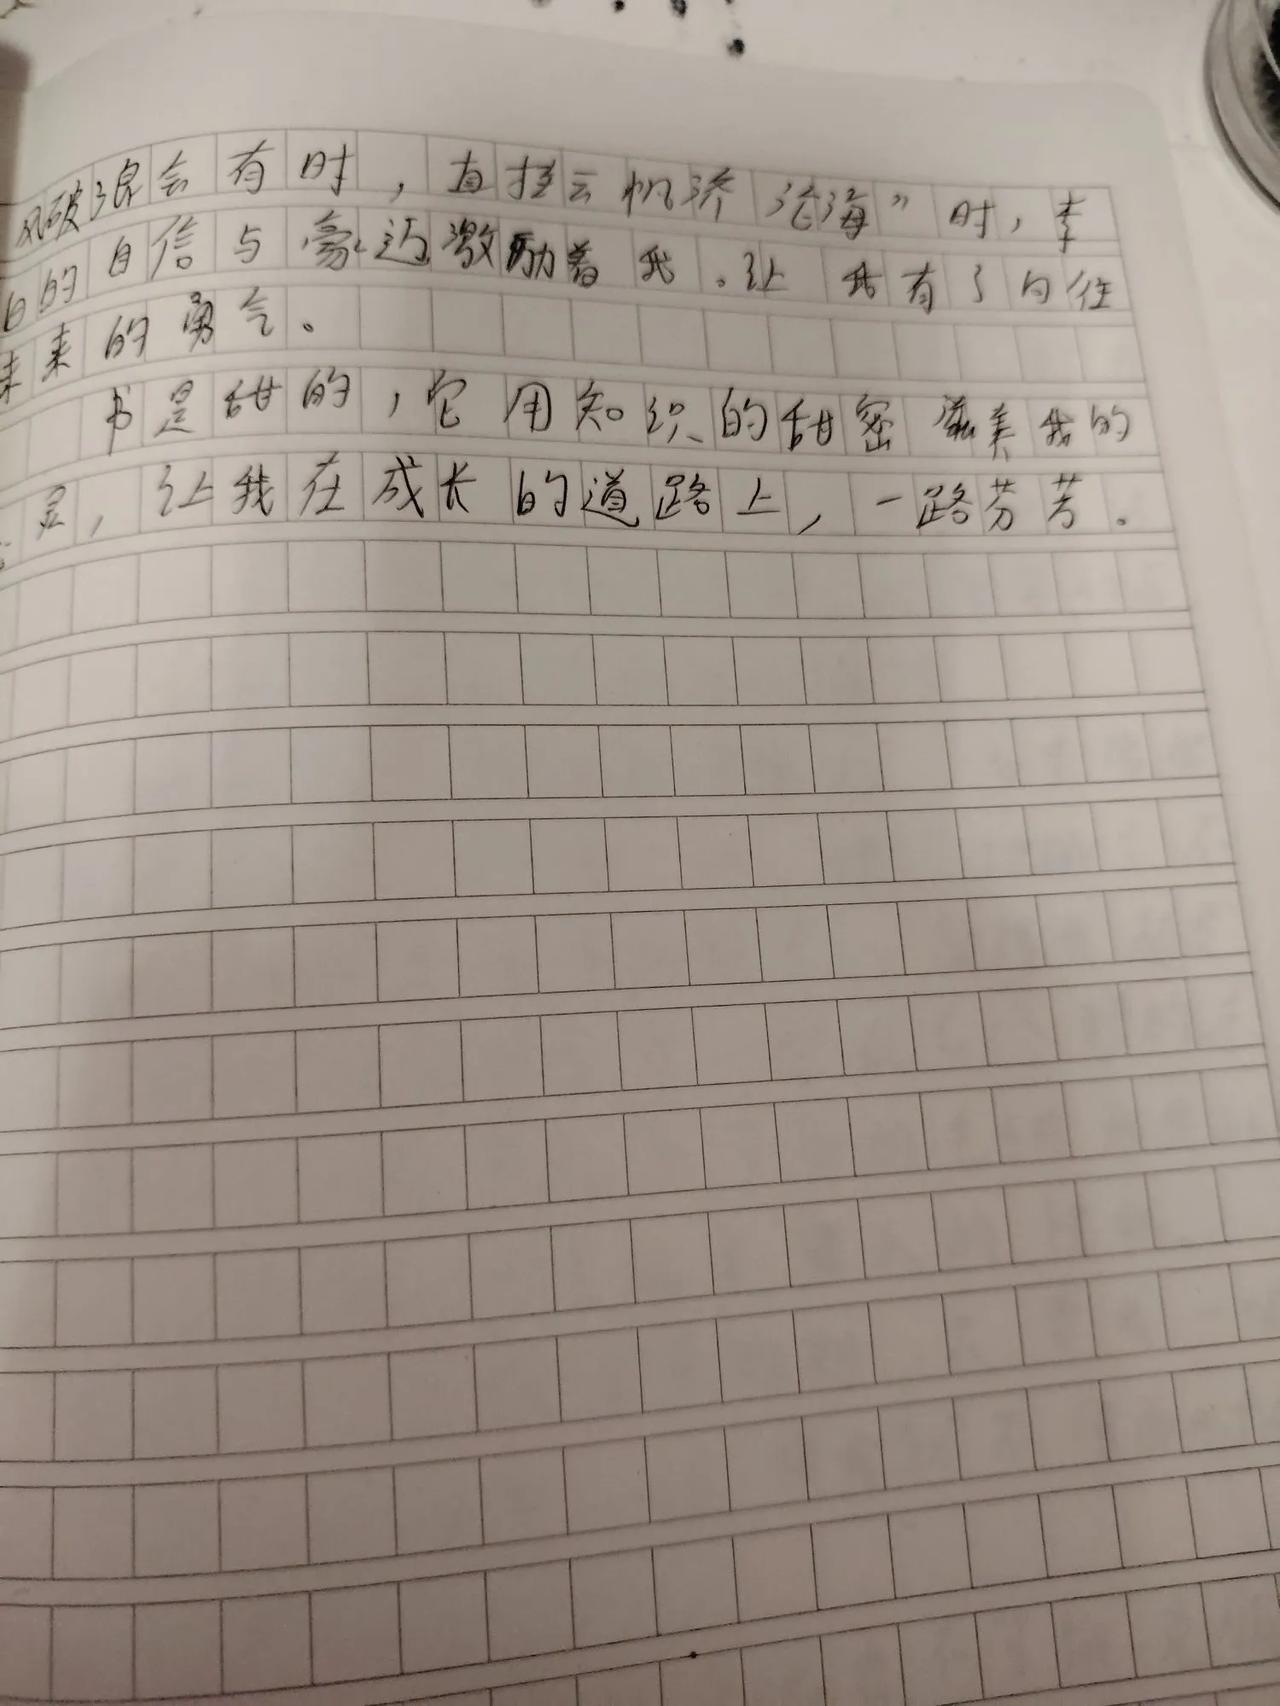 风破浪会有时，直挂云帆济沧海”时，李
白的自信与豪迈激励着我。让我有了向往
未来的勇气。
书是甜的，它用知识的甜密滋美我的
灵，让我在成长的道路上，一路芬芳。